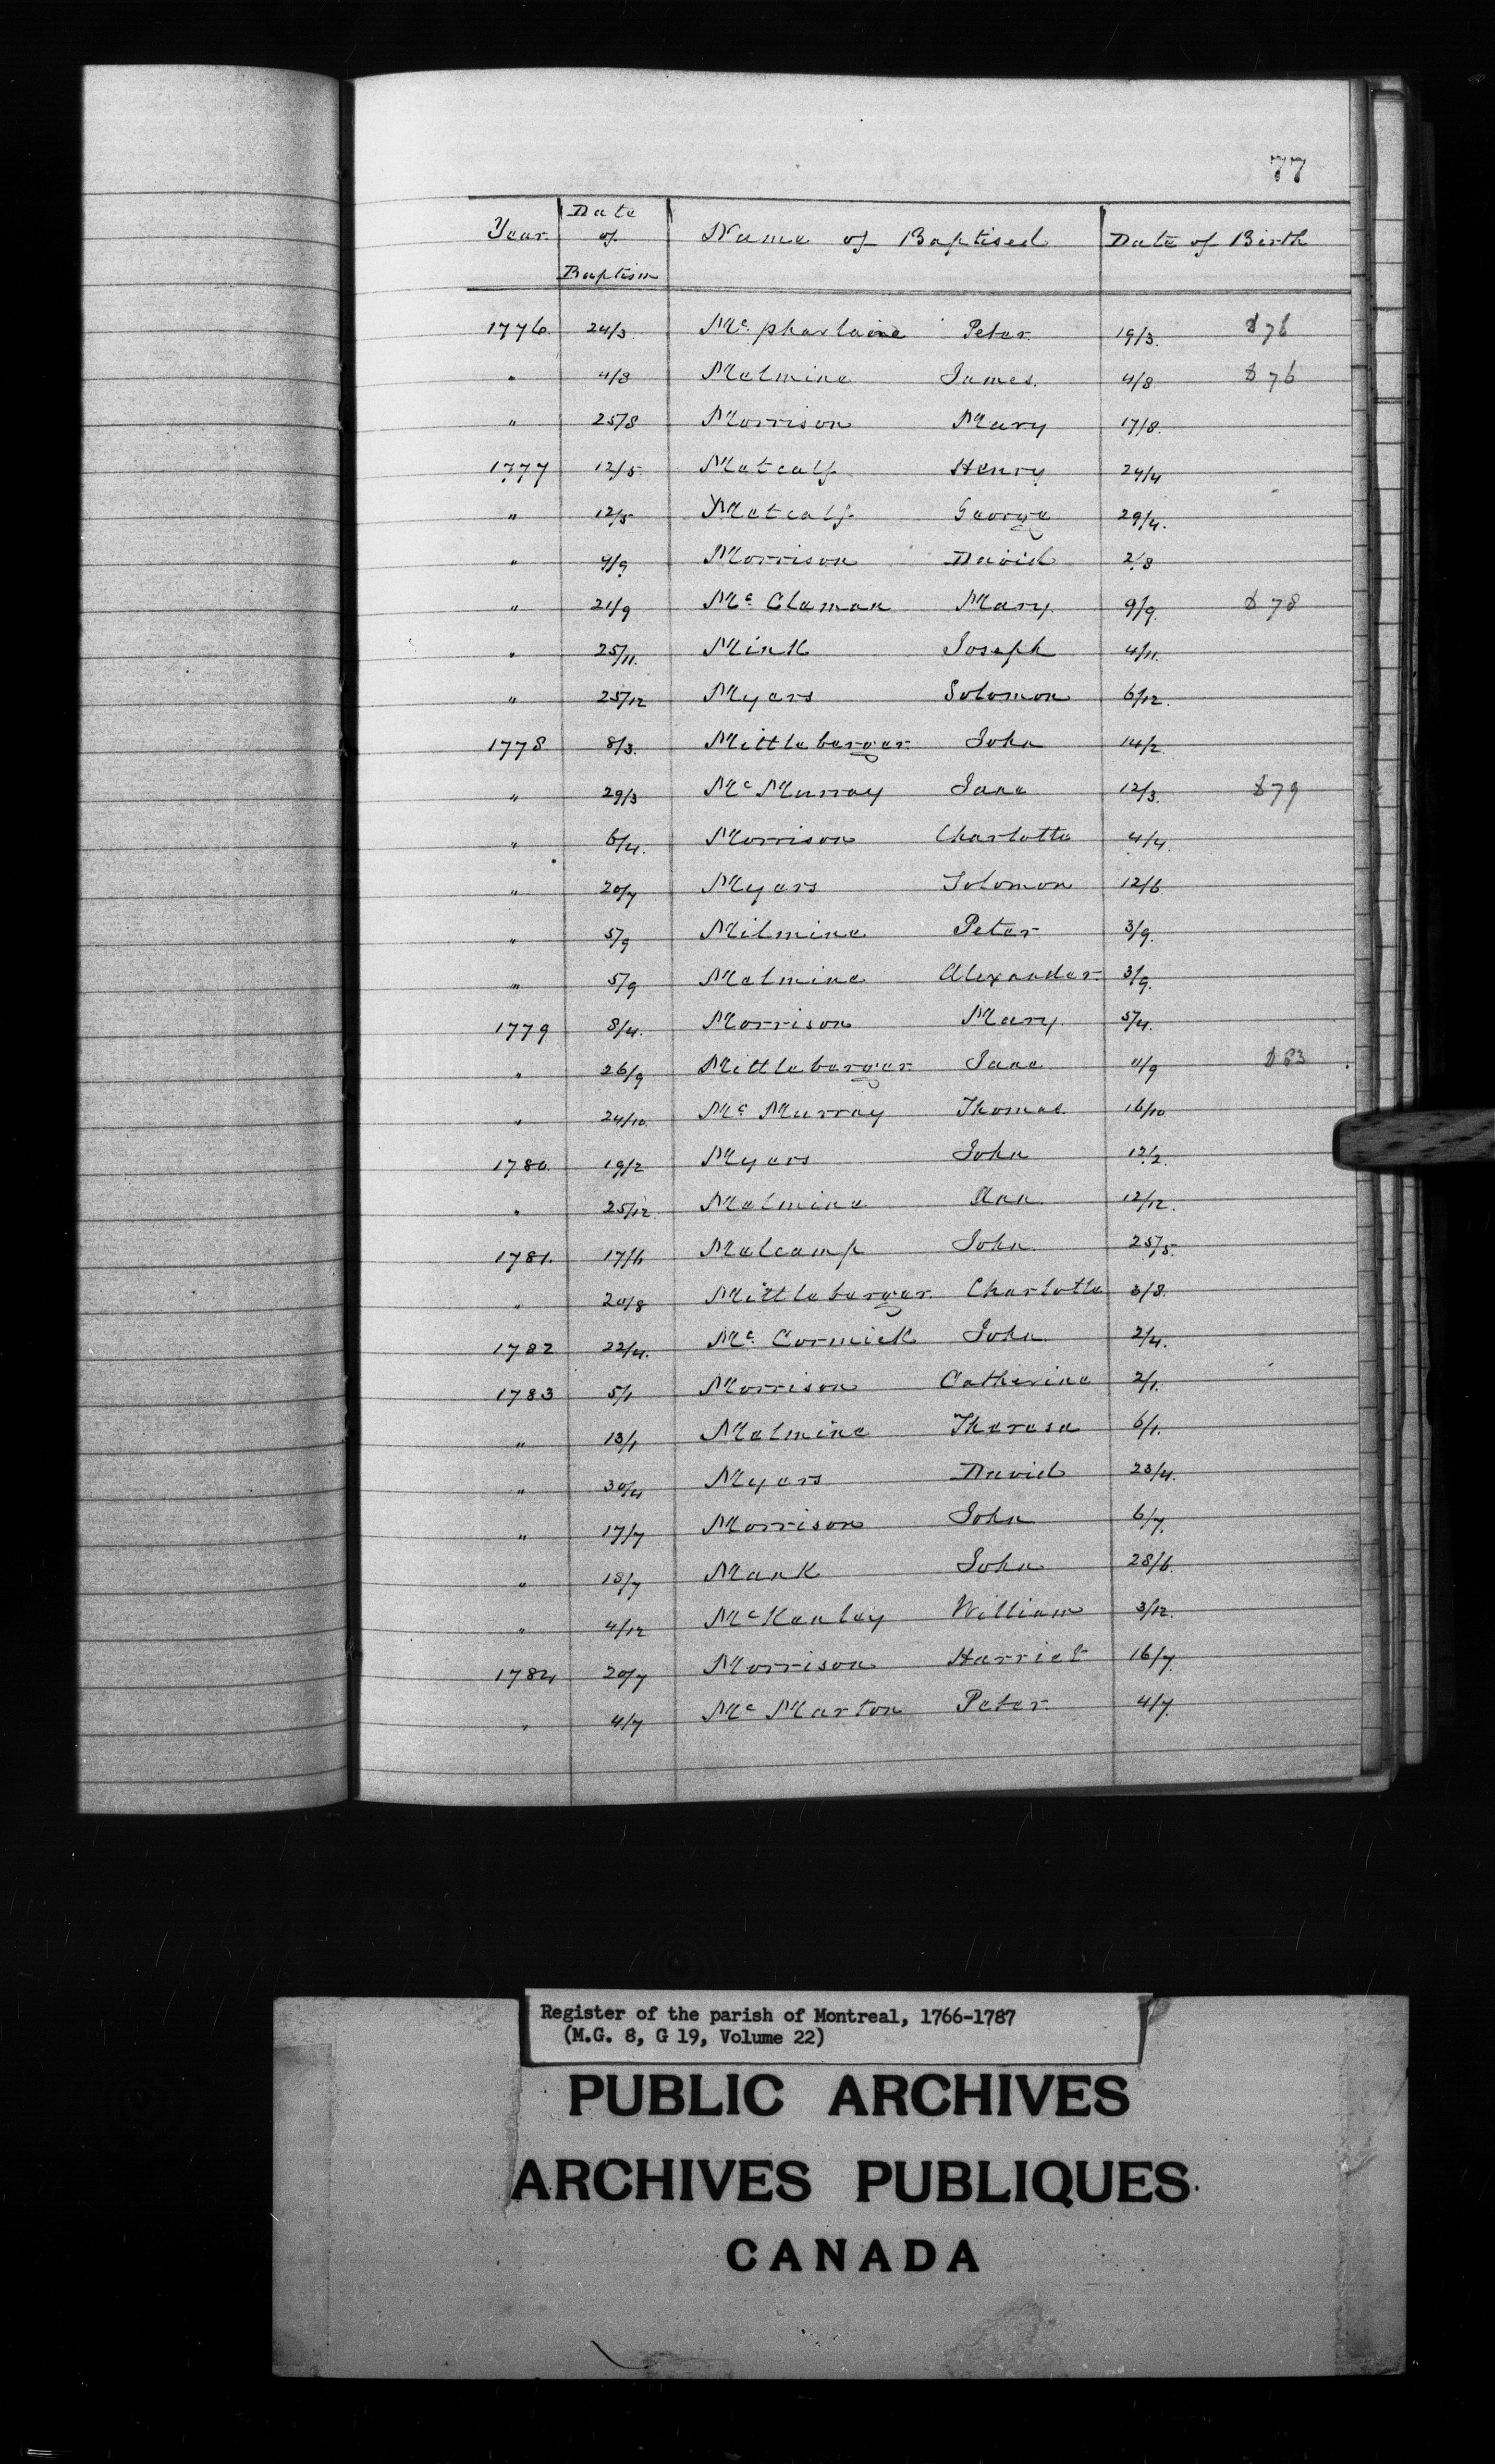 77
Year Date of Baptism Name of Baptised Date of Birth
1776. 24/3. Mc pharlaine Peter 19/3. 76
" 4/8 Melmine James. 4/8 76
" 25/8 Morrison Mary 17/8.
1777 12/5. Metcalf Henry 24/4
" 12/5 Metcalf George 29/4.
" 9/9 Morrison David 2/8
" 21/9 Mc Claman Mary 9/9. 78
" 25/11. Mink Joseph 4/11.
" 25/12 Myers Solomon 6/12.
1778 8/3. Mittleberger John 14/2.
" 29/3 Mc Murray Jane 12/3. 79
" 6/4. Morrison Charlotte 4/4.
" 20/7 Myers Solomon 12/6
" 5/9 Milmine Peter 3/9.
" 5/9 Melmine Alexander. 3/9.
1779 8/4. Morrison Mary. 5/4.
" 26/9 Mittleberger Jane 11/9 83
" 24/10. Mc Murray Thomas 16/10
1780. 19/2 Myers John 12/2.
" 25/12. Melmine Ann. 12/12.
1781. 17/6 Melcamp John. 25/5.
" 20/8 Mittleberger Charlotte 3/8.
1782 22/4. Mc Cormick John 2/4.
1783 5/1 Morrison Catherine 2/1.
" 13/1 Melmine Theresa 6/1.
" 30/4 Myers David 23/4.
" 17/7 Morrison John 6/7.
" 18/7 Mank John 28/6.
" 4/12 McKenley William 3/12.
1784 20/7 Morrison Harriet 16/7.
" 4/7 Mc Marton Peter 4/7.
Register of the parish of Montreal, 1766-1787
(M.G. 8, G 19, Volume 22)
PUBLIC ARCHIVES
ARCHIVES PUBLIQUES
CANADA